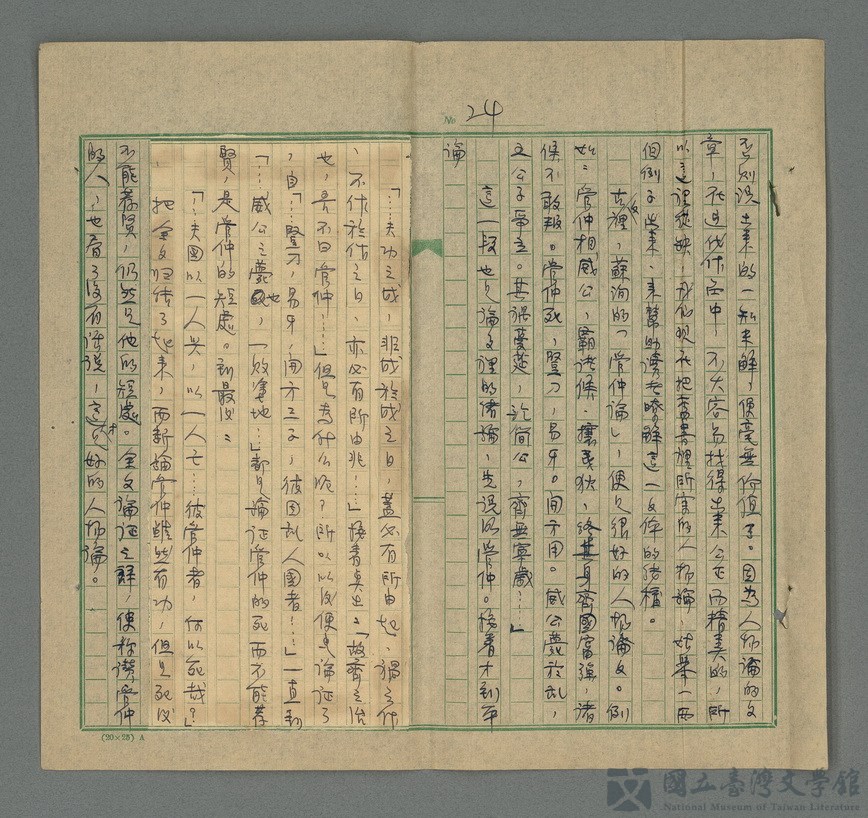 No 24
否則說出來的一知半解,便毫無價值了。因為人物論的文
章,在近代作品中,不大容易找得出來公正而精美的,所
以這裡從缺,我們現在把舊書裡所寫的人物論,姑舉一兩
個例子出來,來幫助讀者瞭解這一文件的積極。
古文裡,蘇洵的「管仲論」,便是很好的人物論文。例
如:管仲相威公,霸諸候,攘夷狄,終其身齊國富強,諸
候不敢叛。管仲死,豎刀,易牙。開方用。威公薨於亂,
五公子爭立。其禍蔓延,訖簡公,齊無寧歲……」
這一段也是論文裡的緒論,先說明管仲。接着才到平
論
「…夫功之成,非成於成之日,蓋必有所由起,禍之作
、不作於作之日,亦必有所由兆……」接着點出:「故齊之治
也,吾不曰管仲……」但是為什么呢?所以以後便是論証了
,自「…豎刀,易牙,開方三子,彼固亂人國者!…」一直到
「…威公之薨也,一敗塗地…」都是論証管仲的死而不能荐
賢,是管仲的短處。到最後:
「…夫國以一人興,以一人亡…彼管仲者,何以死哉?」
把全文归结了起來,而新論管仲雖然有功,但是死後
不能荐賢,仍然是他的短處。全文論証之詳,使称讚管仲
的人,也看了沒有話說,這才是好的人物論。
(20×25) A
國立臺灣文學館
National Museum of Taiwan Literature